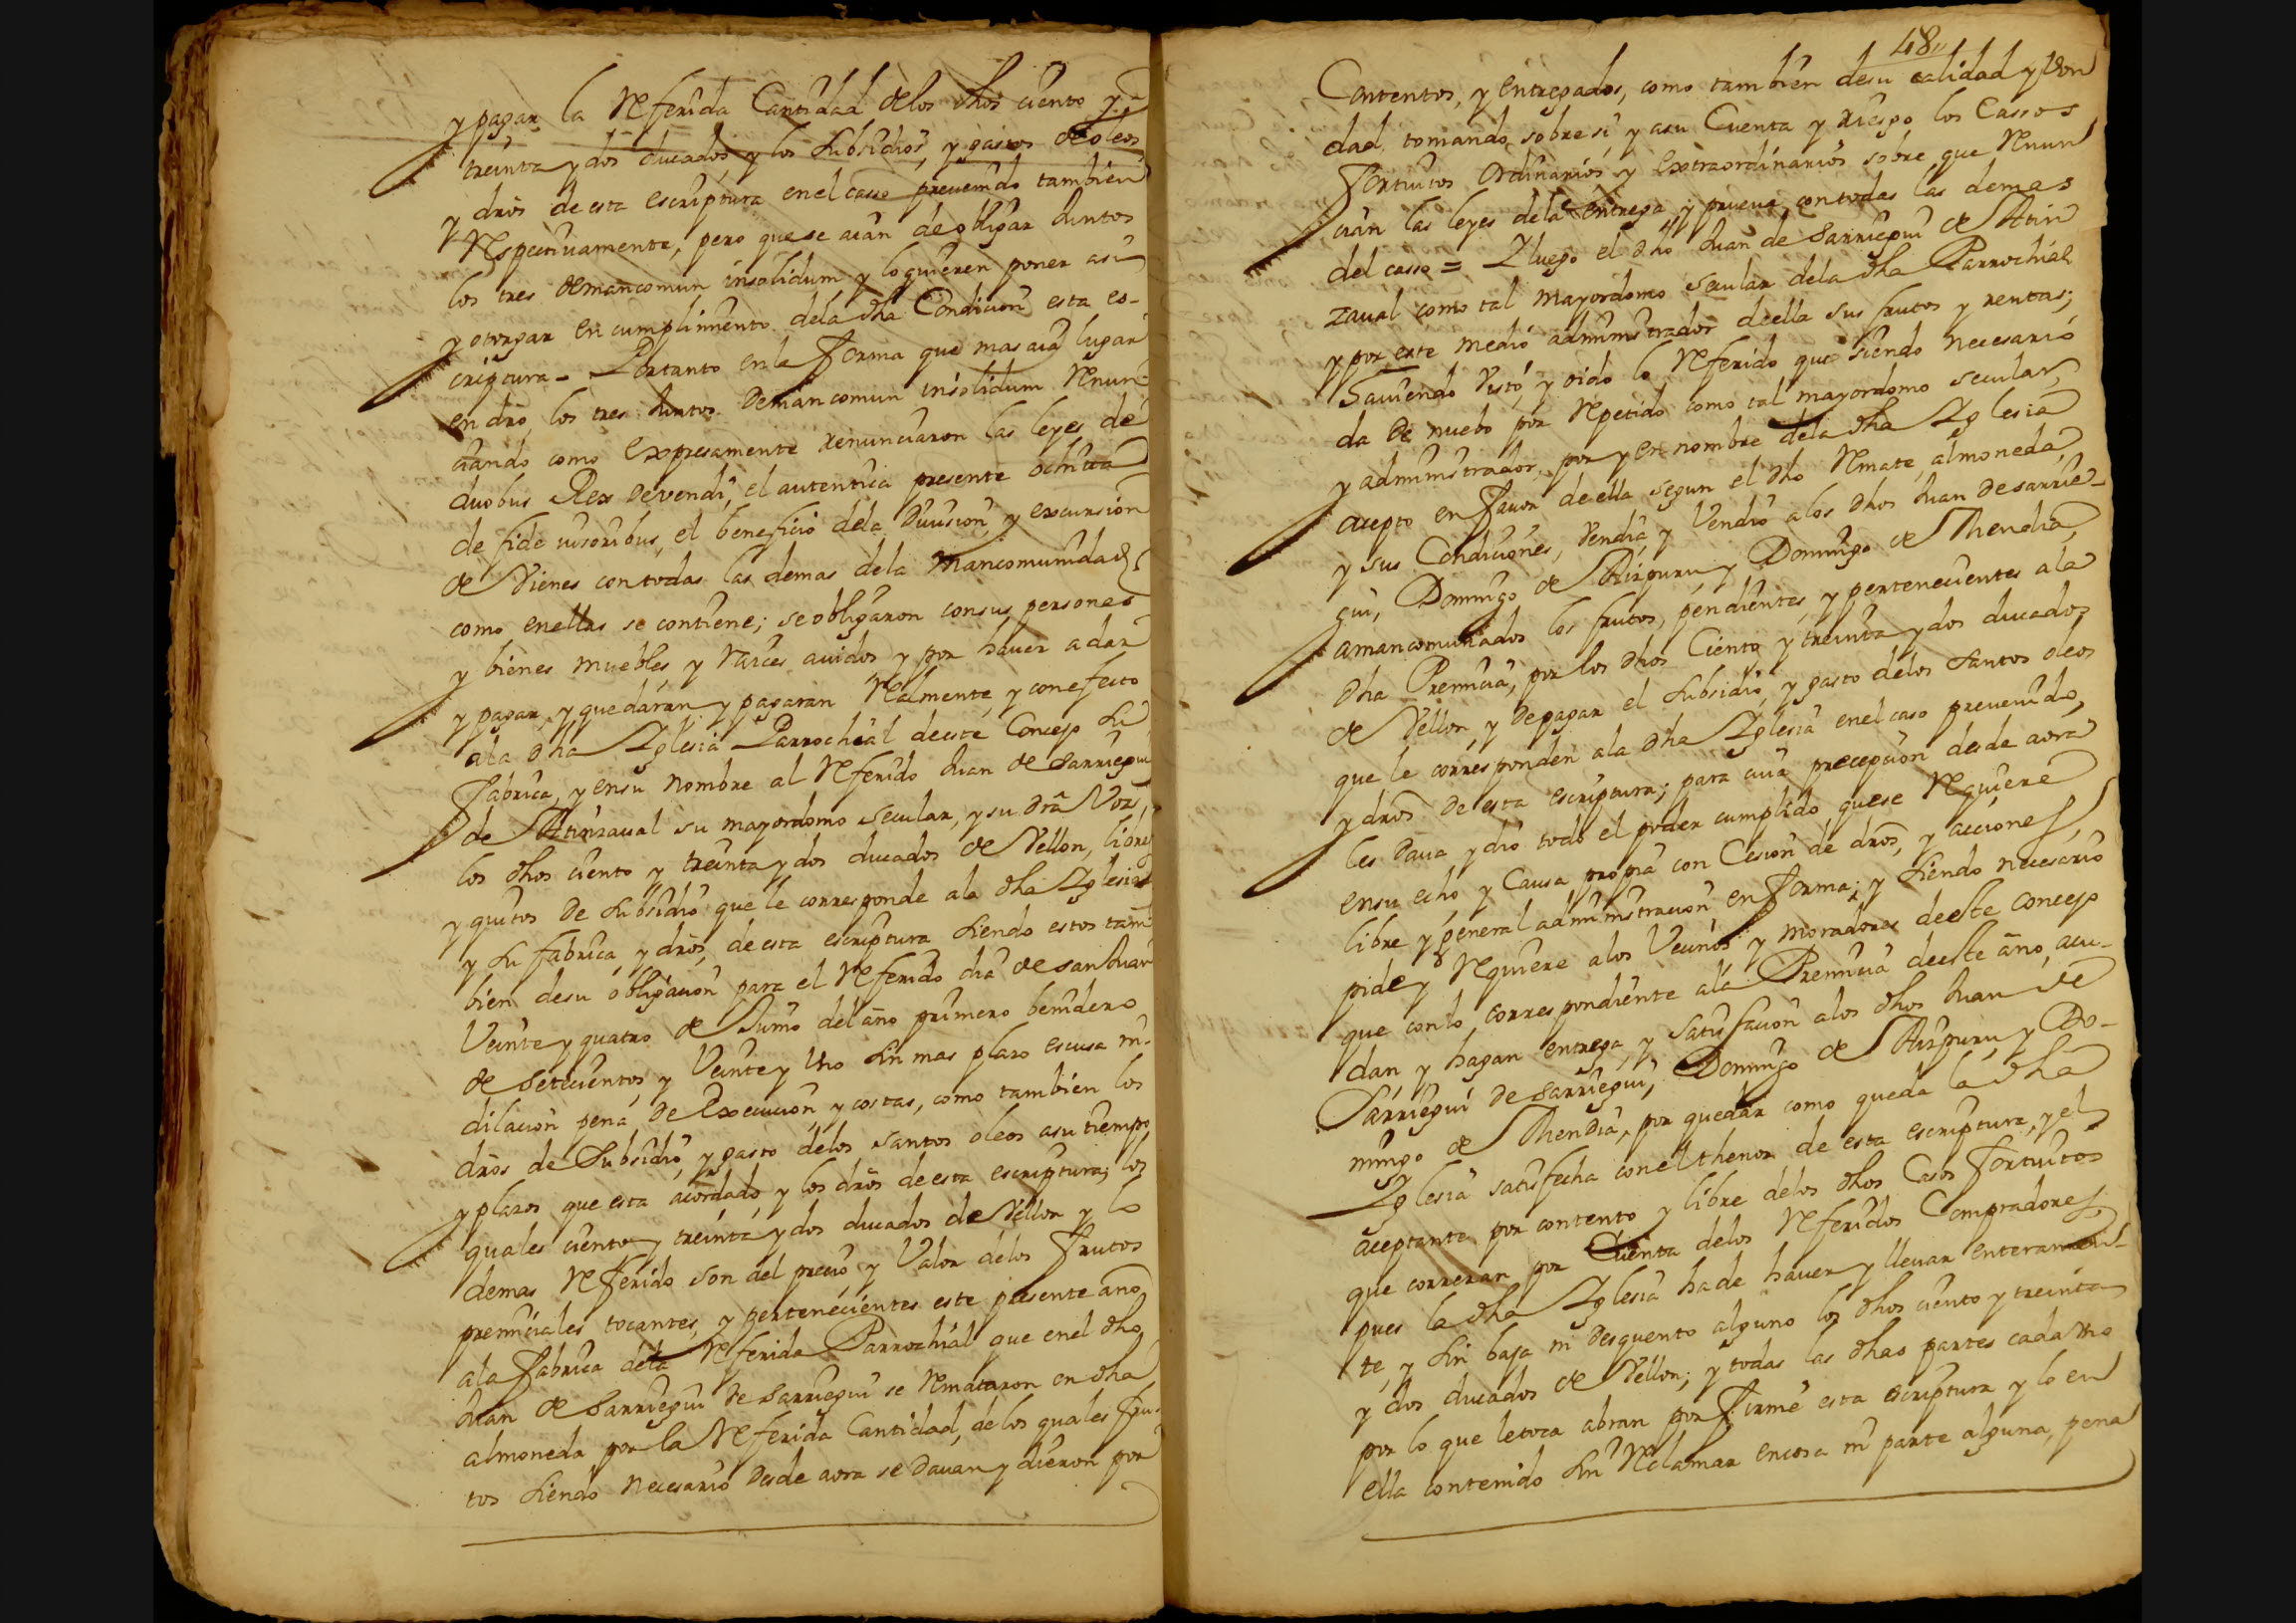 y pagar la Referida Cantidad delos dhos ciento y
treinta y dos ducados, y los subsidios, y gastos de oleos
y dros de esta escriptura en el casso preuenido tambien
Respectiuamente, pero que se aian de obligar Juntos
los tres de mancomun insolidum y lo quieren poner asi
y otorgar en cumplimiento dela dha Condicion esta es-
criptura = Portanto en la forma que mas aia lugar
en dro, los tres Juntos de mancomun insolidum Renun-
ciando como Expresamente renunciaron las leyes de
duobus Rex devendi, el autentica presente ochita
de fide iusoribus, el beneficio dela Diuision, y excursion
de Vienes con todas las demas dela Mancomunidad
como en ellas se contiene; se obligaron con sus persones
y bienes muebles, y raices auidos y por hauer a dar
y pagar, y que daran y pagaran Realmente, y con efecto
ala dha Yglesia Parrochial de este Concejo su
fabrica, y en su nombre al Referido Juan de Sarriegui
de Atinzaual su mayordomo Secular, y su dra Voz,
los dhos ciento y treinta y dos ducados de Vellon, libres
y quitos de Subsidio que le corresponde ala dha Yglesia
y su fabrica, y dros, de esta escriptura siendo estos tam-
bien desu obligacion para el Referido dia de san Juan
Veinte y quatro de Junio del año primero benidero
de Setecientos, y Veinte y Uno sin mas plazo escusa ni
dilacion pena de Execucion, y costas, como tambien los
dros de Subsidio, y gasto delos santos oleos asu tiempo
y plazos que esta acordado, y los dros de esta escriptura; los
quales ciento y treinta y dos ducados de Vellon y lo
demas Referido son del precio, y Valor delos frutos
premiciales tocantes, y pertenecientes este presente año
ala fabrica dela Referida Parrochial que en el dho
Juan de Sarriegui de Sarriegui se Remataron en dha
almoneda por la Referida Cantidad, de los quales fru-
tos siendo necesario desde aora se dauan y dieron por
48
Contentos, y entregados, como tambien desu calidad y Von
dad, tomando sobre si, y asu Cuenta y riesgo los Cassos
Fortuitos Ordinarios y Extraordinarios sobre que Renun
cian las leyes dela entrega, y prueua con todas las demas
del casso = Y luego el dho Juan de Sarriegui de Atin
zaual como tal mayordomo Secular dela dha Parrochial
y por este medio administrador de ella sus frutos y rentas;
Hauiendo Visto, y oido lo Referido que siendo necesario
da de nuebo por Repetido como tal mayordomo secular,
y administrador, por y en nombre dela dha Yglesia
acepto en fauor de ella segun el dho Remate, almoneda,
y sus Condiciones, Vendia, y Vendio alos dhos Juan de Sarrie-
gui, Domingo de Aizpuru, y Domingo de Mendia,
amancomunados los frutos, pendientes, y pertenecientes ala
dha Premicia, por los dhos Ciento y treinta y dos ducados
de Vellon, y de pagar el Subsidio, y gasto delos Santos oleos
que le corresponden ala dha Yglesia en el caso preuenido,
y dros de esta escriptura; para cuia precepcion desde aora
les daua y dio todo el poder cumplido que se Requiere
en su echo y Causa propia con Cesion de dros, y acciones,
libre y general administracion en forma; y siendo necesario
pide y Requiere alos Vecinos y moradores de este concejo
que con lo correspondiente ala Premicia de este año, acu-
dan, y hagan entrega, y satisfacion alos dhos Juan de
Sarriegui de Sarriegui, Domingo de Aizpuru, y Do-
mingo de Mendia, por quedar como queda la dha
Yglesia satisfecha con el thenor de esta escriptura, y el
aceptante por contento y libre delos dhos Casos fortuitos
que correran por Cuenta delos Referidos Compradores,
pues la dha Yglesia ha de hauer y lleuar enteramen-
te, y sin baja ni desquento alguno los dhos ciento y treinta
y dos ducados de Vellon; y todas las dhas partes cada uno
por lo que le toca abran por firme esta escriptura y lo en
ella contenido sin Reclamar en cosa ni parte alguna, pena